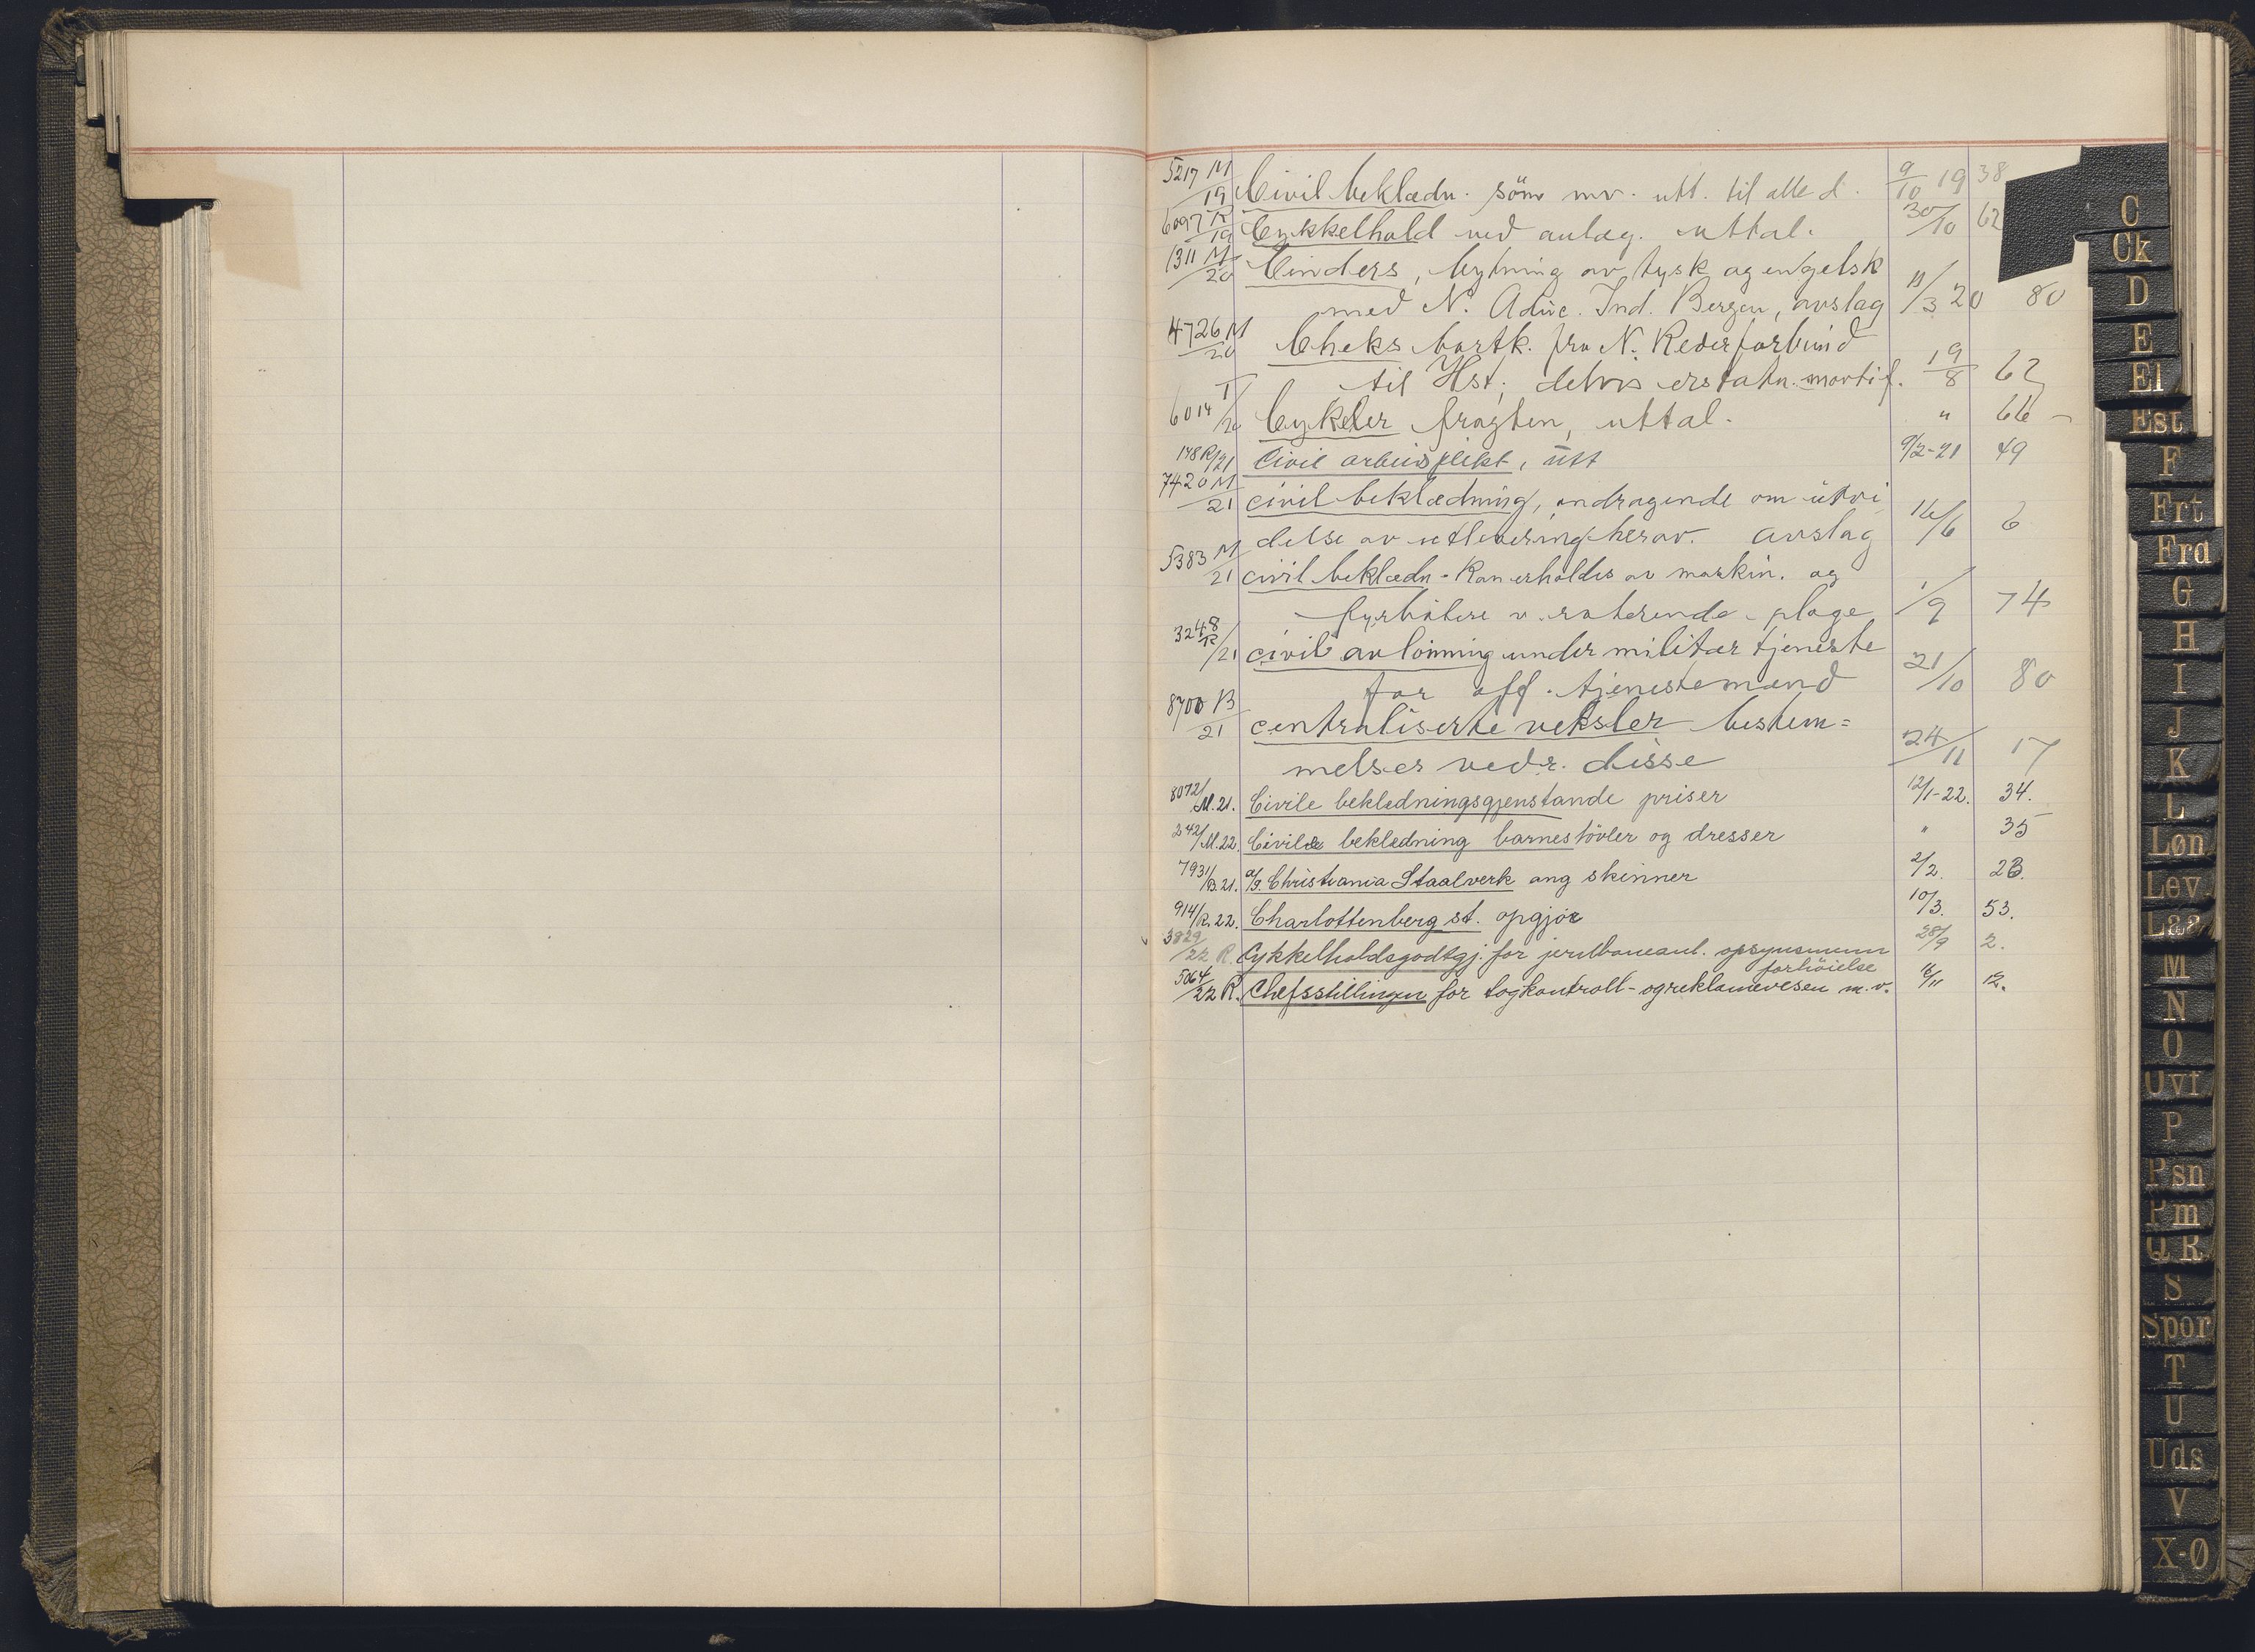 5217 M/19 Civil beklædn. söm mv. utt. til alle d. 9/10 19 38
6097 R/19 Cykkelhold ved anlæg. uttal. 30/10 62
1311 M/20 Cinders, bytning av tysk og engelsk
med N. Aduc. Ind. Bergen, avslag 11/3 20 80
4726 M/20 Cheks bortk. fra N. Rederforbund
til Hst; delvis erstatn. mortif. 19/8 62
6014 T/20 Cykeler fragten, uttal. " 66
148 R/21 Civil arbeidsplikt, utt 9/2-21 49
7420 M/21 civil beklædning, andragende om utvi
delse av utlevering herav. avslag 16/6 6
5383 M/21 civil beklædn. kan erholdes av maskin. og
fyrbötere v. roterende ploge 1/9 74
3248 R/21 civil avlönning under militær tjeneste
for off. tjenestemænd 21/10 80
8700 B/21 centraliserte veksler bestem=
melser vedr. disse 24/11 17
8072/M.21. Civile beklædningsgjenstande priser 12/1-22. 34.
242/M.22. Civile beklædning barnestövler og dresser " 35
7931/B.21. a/s. Christiania Staalverk ang skinner 2/2. 23.
914/R.22. Charlottenberg st. opgjör 10/3. 53.
3829/22 R. Cykkelholdsgodtgj. for jernbaneanl. opsynsmenn 28/9 2.
forhöielse
5064/22 R. Chefsstillingen for togkontroll- og reklamevesen m.v. 16/11 12.
C
Ck
D
E
El
Est
F
Frt
Fra
G
H
I
J
K
L
Løn
Lev.
Laan
M
N
O
Ovf
P
Psn
Pm
Q R
S
Spor
T
U
Uds
V
X-Ø